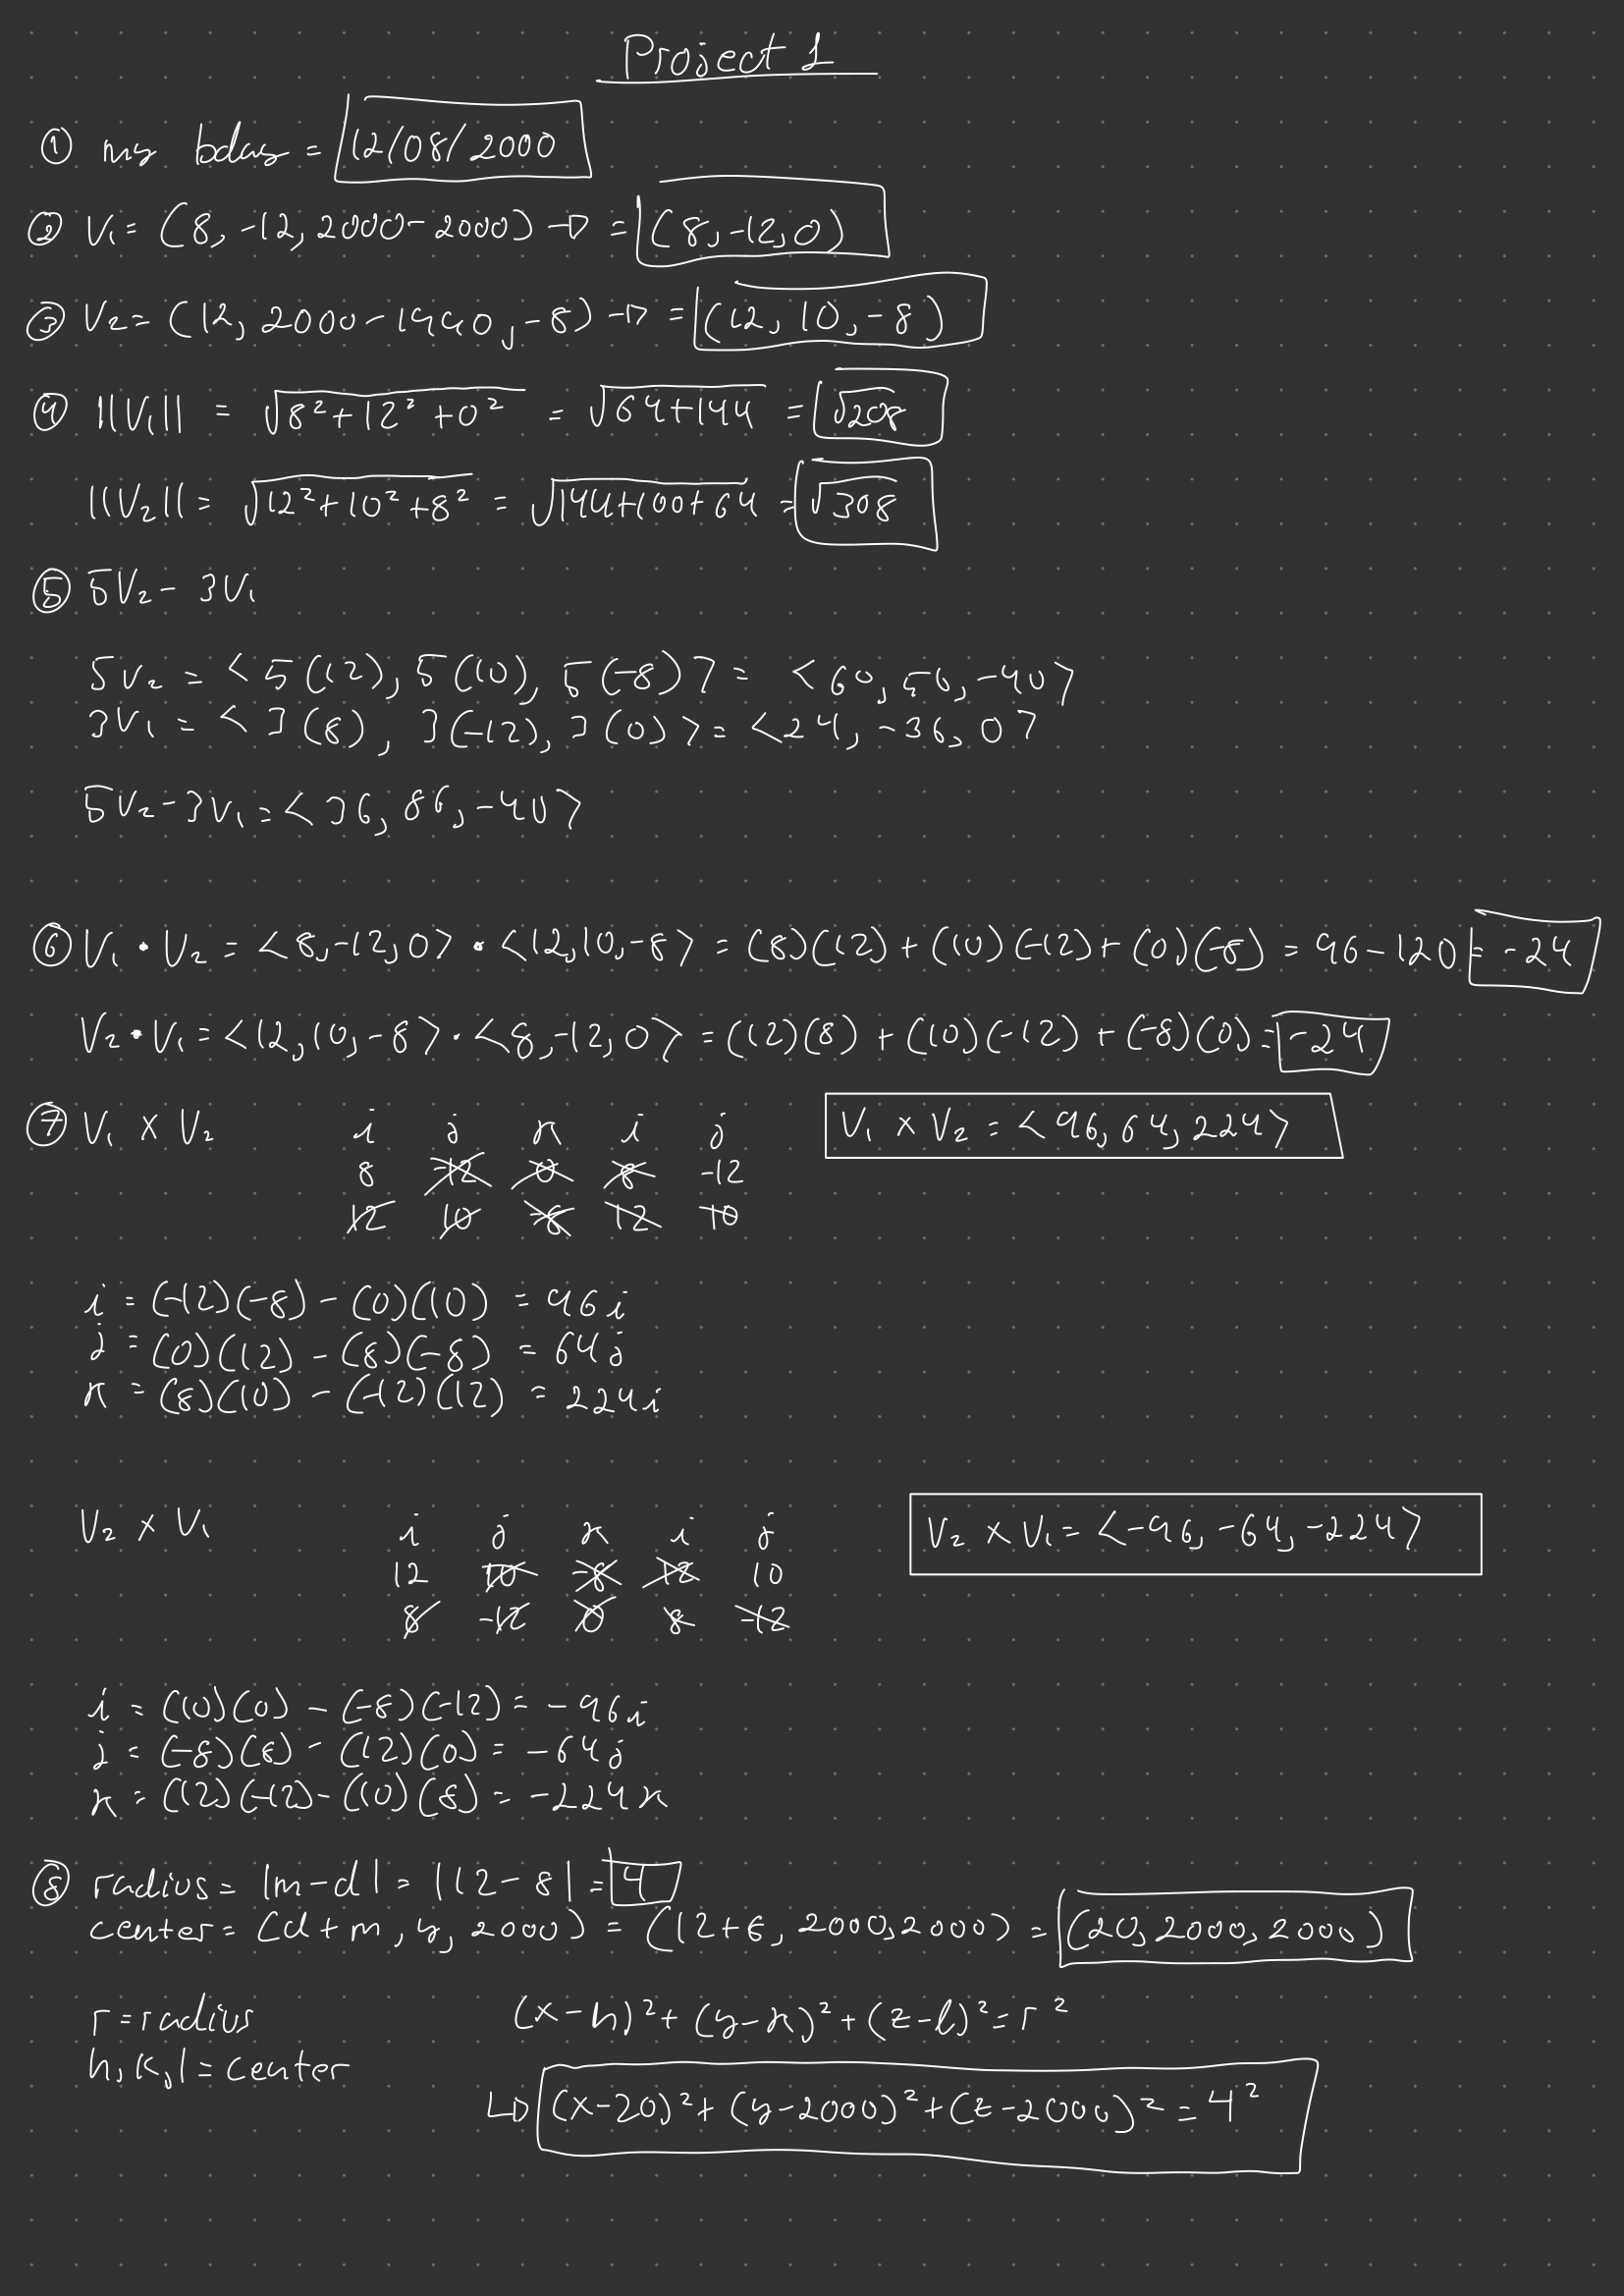 Project 1
① my bday = 12/08/2000
② V₁ = (8, -12, 2000-2000) → = (8, -12, 0)
③ V₂ = (12, 2000-1990, -8) → = (12, 10, -8)
④ ||V₁|| = √8²+12²+0² = √64+144 = √208
||V₂|| = √12²+10²+8² = √144+100+64 = √308
⑤ 5V₂ - 3V₁
5V₂ = <5(12), 5(10), 5(-8)> = <60, 50, -40>
3V₁ = <3(8), 3(-12), 3(0)> = <24, -36, 0>
5V₂-3V₁ = <36, 86, -40>
⑥ V₁ • V₂ = <8, -12, 0> • <12, 10, -8> = (8)(12) + (10)(-12) + (0)(-8) = 96-120 = -24
V₂ • V₁ = <12, 10, -8> • <8, -12, 0> = (12)(8) + (10)(-12) + (-8)(0) = -24
⑦ V₁ × V₂ i j k i j V₁ × V₂ = <96, 64, 224>
8 -12 0 8 -12
12 10 -8 12 10
i = (-12)(-8) - (0)(10) = 96i
j = (0)(12) - (8)(-8) = 64j
k = (8)(10) - (-12)(12) = 224i
V₂ × V₁ i j k i j V₂ × V₁ = <-96, -64, -224>
12 10 -8 12 10
8 -12 0 8 -12
i = (10)(0) - (-8)(-12) = -96i
j = (-8)(8) - (12)(0) = -64j
k = (12)(-12) - (10)(8) = -224k
⑧ radius = |m-d| = |12-8| = 4
center = (d+m, y, 2000) = (12+8, 2000, 2000) = (20, 2000, 2000)
r = radius (x-h)² + (y-k)² + (z-l)² = r²
h, k, l = center
↳ (x-20)² + (y-2000)² + (z-2000)² = 4²